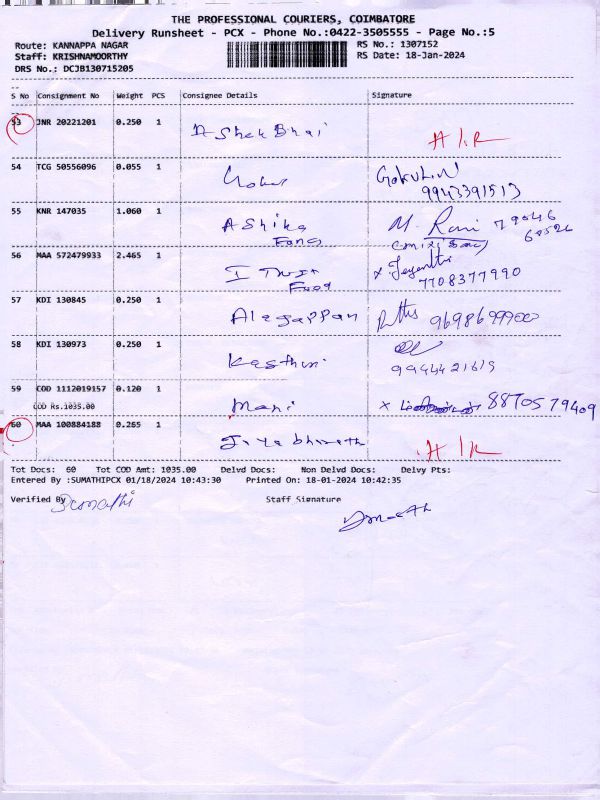 THE PROFESSIONAL COURIERS, COIMBATORE
Delivery Runsheet - PCX - Phone No.:0422-3505555 - Page No.:5
Route: KANNAPPA NAGAR
RS No.: 1307152
Staff: KRISHNAMOORTHY
RS Date: 18-Jan-2024
DRS No.: DCJB130715205
S No Consignment No Weight PCS Consignee Details Signature
53 JNR 20221201 0.250 1 AShek Bhai A I.R
54 TCG 50556096 0.055 1 GokulN
9943391513
55 KNR 147035 1.060 1 AShika M. Rani
Fang
56 MAA 572479933 2.465 1 I Trust x Jeyanthi
Food 7708377990
57 KDI 130845 0.250 1 Alagappan
58 KDI 130973 0.250 1 Kasthuri
59 COD 1112019157 0.120 1 Mani x 8870579409
COD Rs.1035.00
60 MAA 100884188 0.265 1 A I R
Tot Docs: 60 Tot COD Amt: 1035.00 Delvd Docs: Non Delvd Docs: Delvy Pts:
Entered By :SUMATHIPCX 01/18/2024 10:43:30 Printed On: 18-01-2024 10:42:35
Verified By Staff Signature